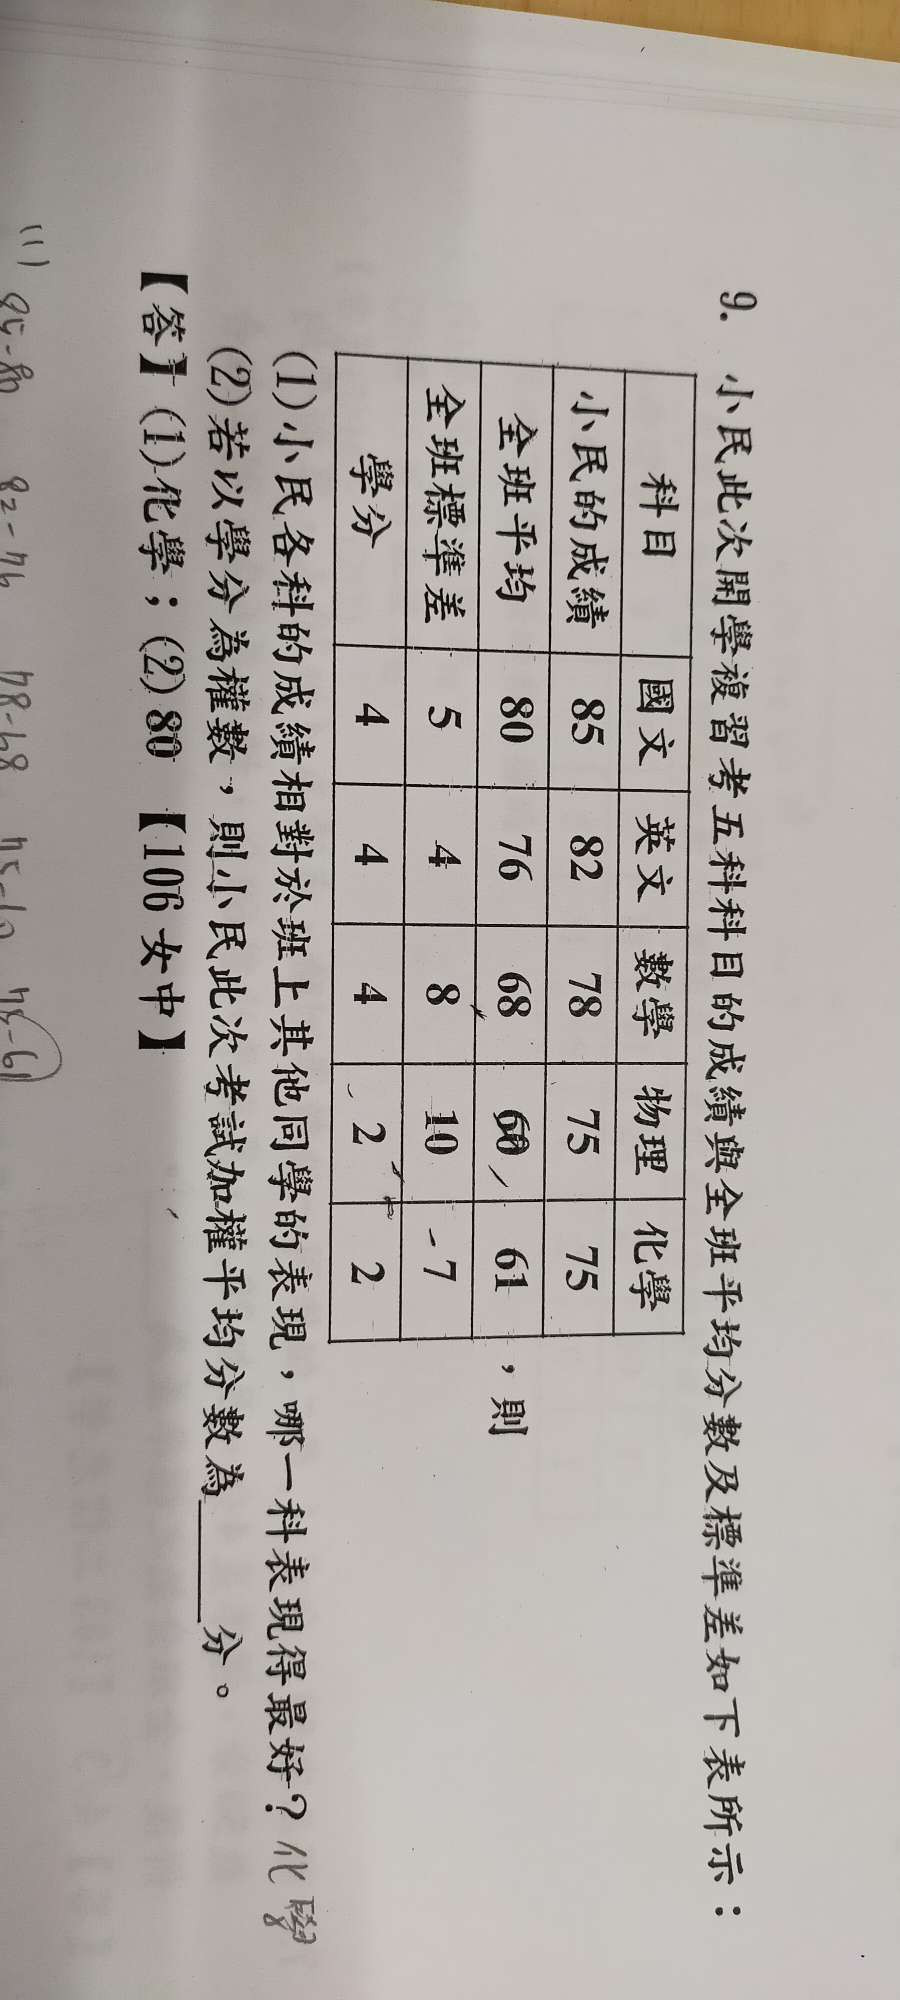 9. 小民此次開學複習考五科科目的成績與全班平均分數及標準差如下表所示：
科目 國文 英文 數學 物理 化學
小民的成績 85 82 78 75 75
全班平均 80 76 68 60 61 ，則
全班標準差 5 4 8 10 7
學分 4 4 4 2 2
(1)小民各科的成績相對於班上其他同學的表現，哪一科表現得最好？化學
(2)若以學分為權數，則小民此次考試加權平均分數為＿＿＿分。
【答】(1)化學；(2)80 【106女中】
(1) 85-80 82-76 78-68 75-60 75-61